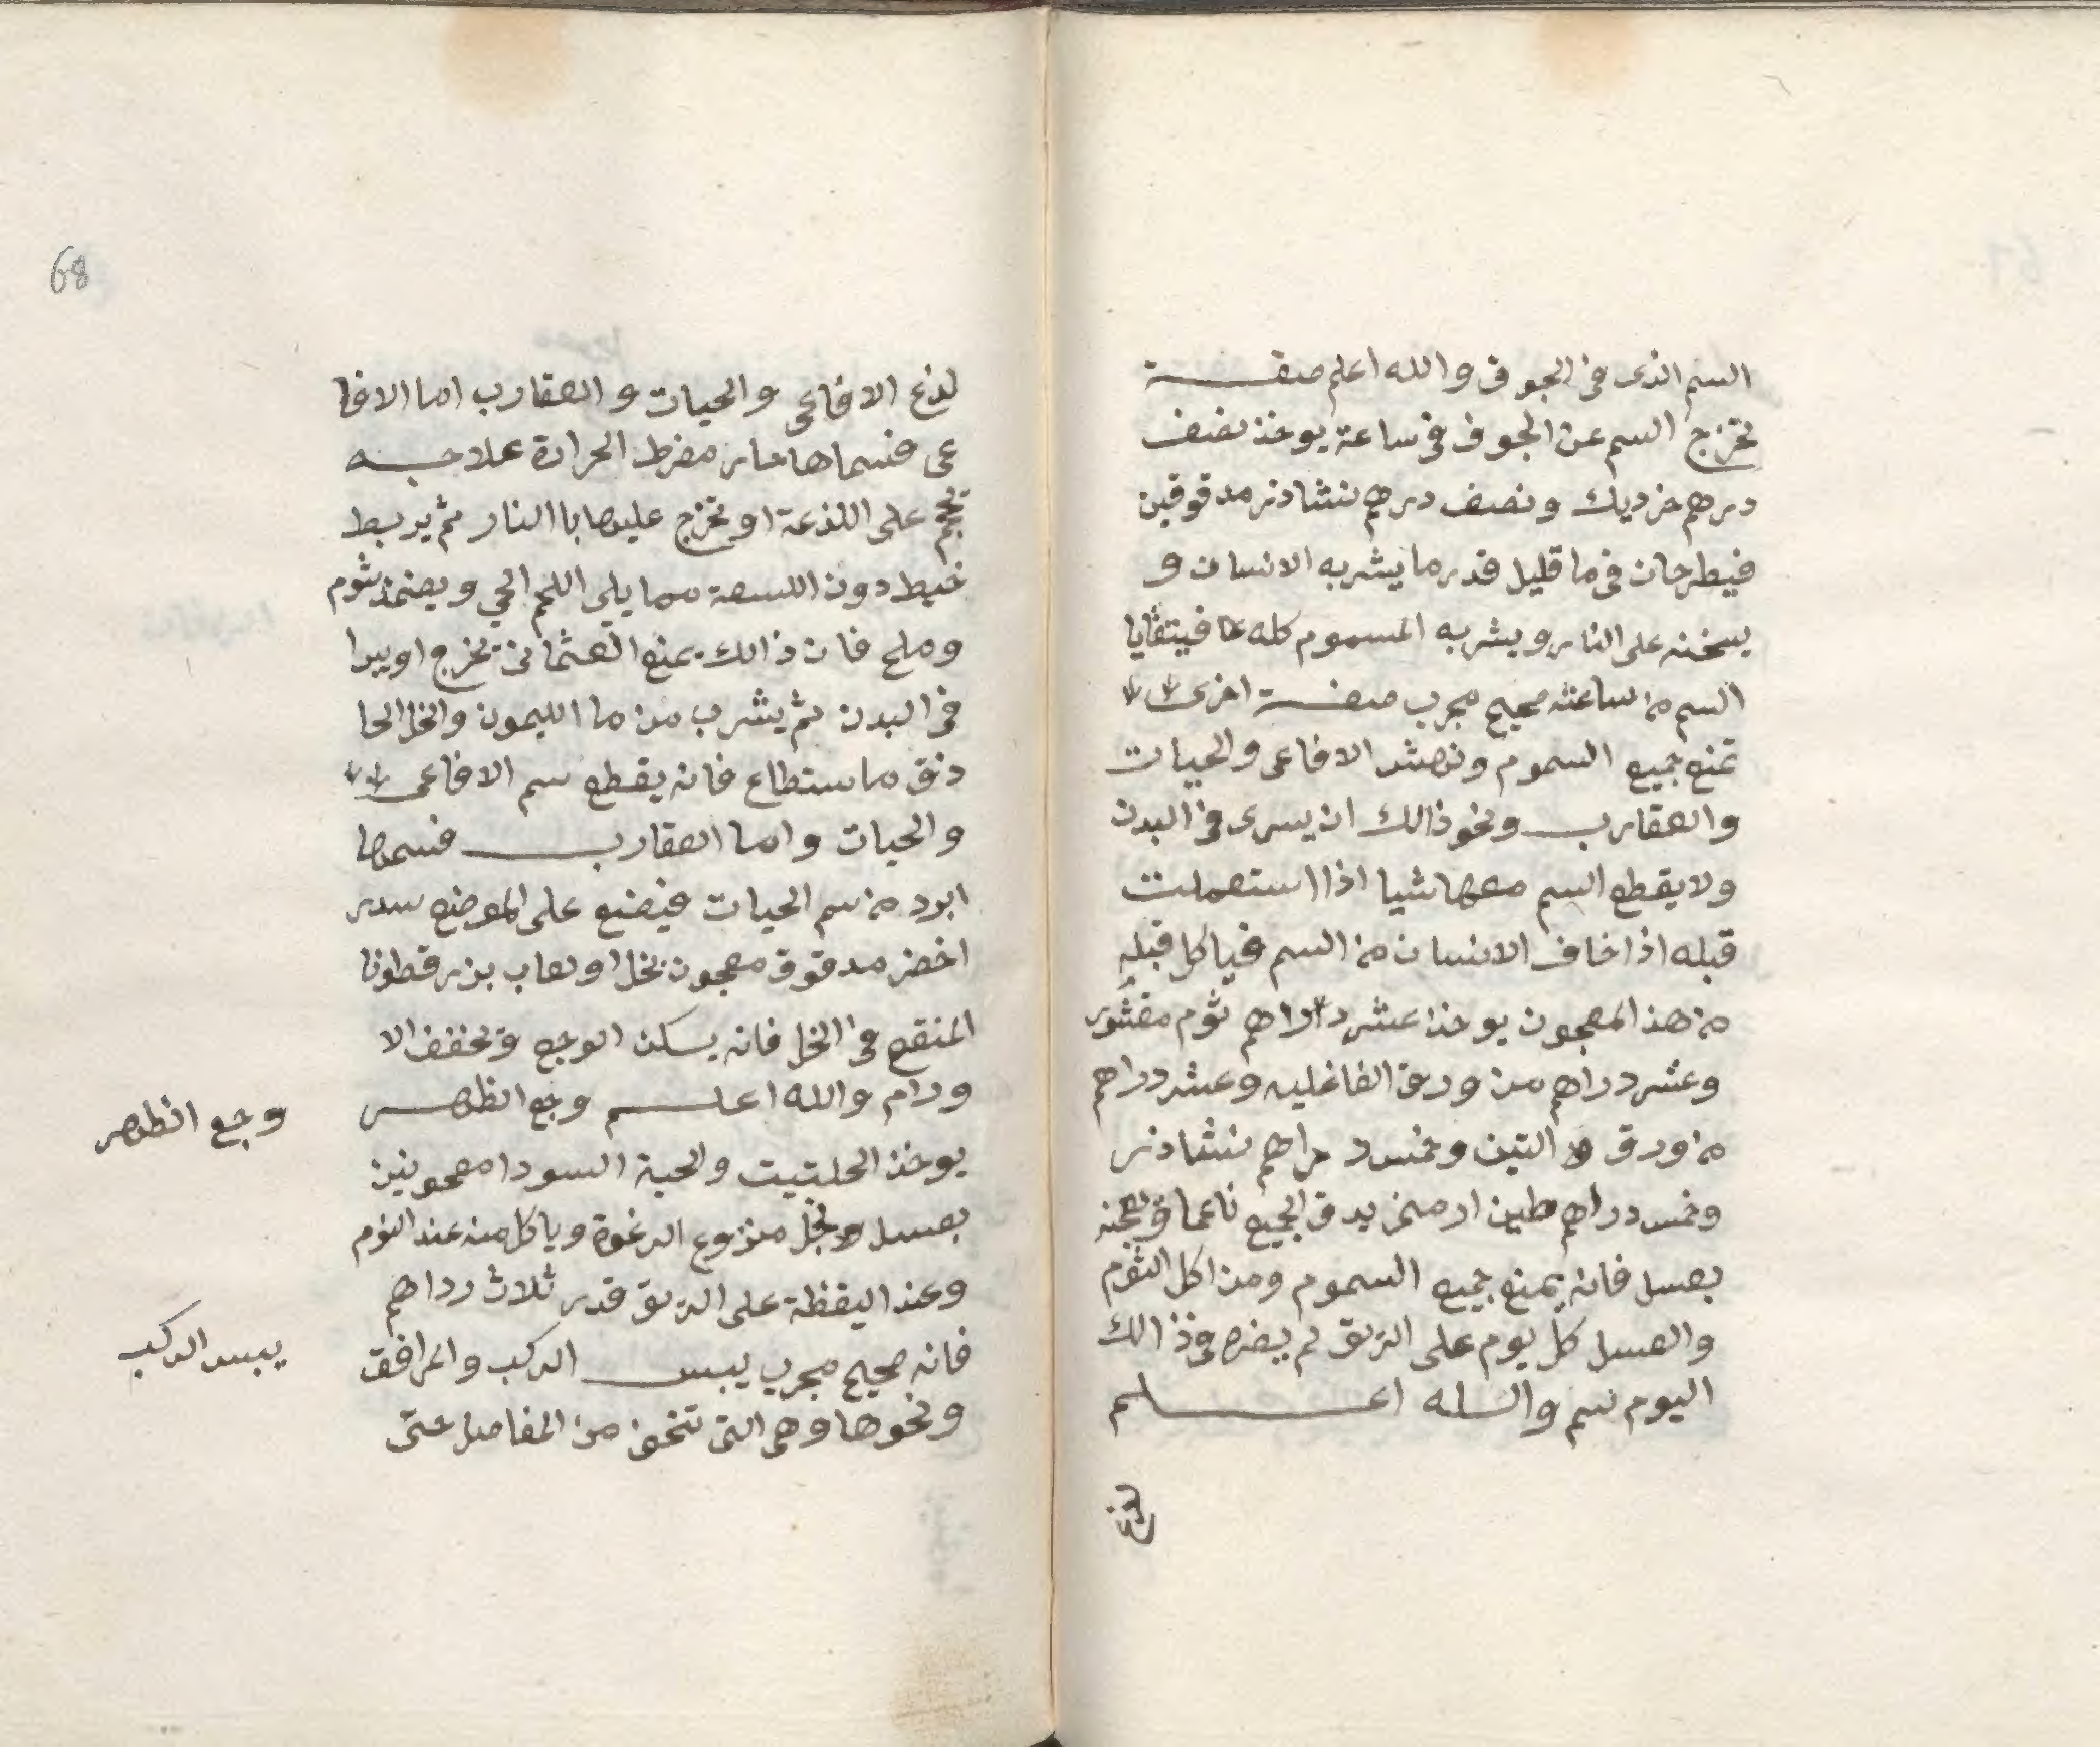 السم الذى فى الجوف والله اعلم صفة
تخرج السم عن الجوف فى ساعة يوخذ نصف
درهم خرديك ونصف درهم نشادر مدقوقين
فيطرحان فى ما قليل قدر ما يشربه الانسان و
يسخنه على النار ويشربه المسموم كله فيتقايا
السم من ساعته صحيح مجرب صفة اخرى
تمنع جميع السموم ونهش الافاعى والحيات
والعقارب ونحو ذالك ان يسرى فى البدن
ولا يقطع السم معها شيا اذا استعملت
قبله اذا خاف الانسان من السم فياكل قبله
من هذ المعجون يوخذ عشر دراهم ثوم مقشور
وعشر دراهم من ورق الفاغليه وعشر دراهم
من ورق التين وخمس دراهم نشادر
وخمس دراهم طين ارمنى يدق الجميع ناعما ويعجنه
بعسل فانه يمنع جميع السموم ومن اكل الثوم
والعسل كل يوم على الريق لم يضره فى ذالك
اليوم سم والله اعلم
لدغ
68
لدغ الافاعى والحيات والعقارب اما الافا
عى فسماها حار مفرط الحرارة علاجه
تحجم على اللدغة او تخرج عليها باالنار ثم يربط
خيط دون اللسعة مما يلى اللحم الحي ويضمد بثوم
وملح فان ذالك يمنع يخرج او يبرا
فى البدن ثم يشرب من ما الليمون والخل الحا
ذق ما ستطاع فانه يقطع سم الافاعى
والحيات واما العقارب فسمها
ابرد من سم الحيات فيضع على الموضع سدر
اخضر مدقوق معجون بخل او لعاب بزر قطونا
المنقع فى الخل فانه يسكن الوجع ويخفف الا
ورام والله اعلم وجع الظهر
وجع الظهر
يوخذ الحلتيت والحبة السودا معجونين
بعسل ونخل منزوع الرغوة وياكل منه عند النوم
وعند اليقظة على الريق قدر ثلاث دراهم
فانه صحيح مجرب يبس الركب والمرافق
يبس الركب
ونحوها وهى التى تتخن من المفاصل حتى